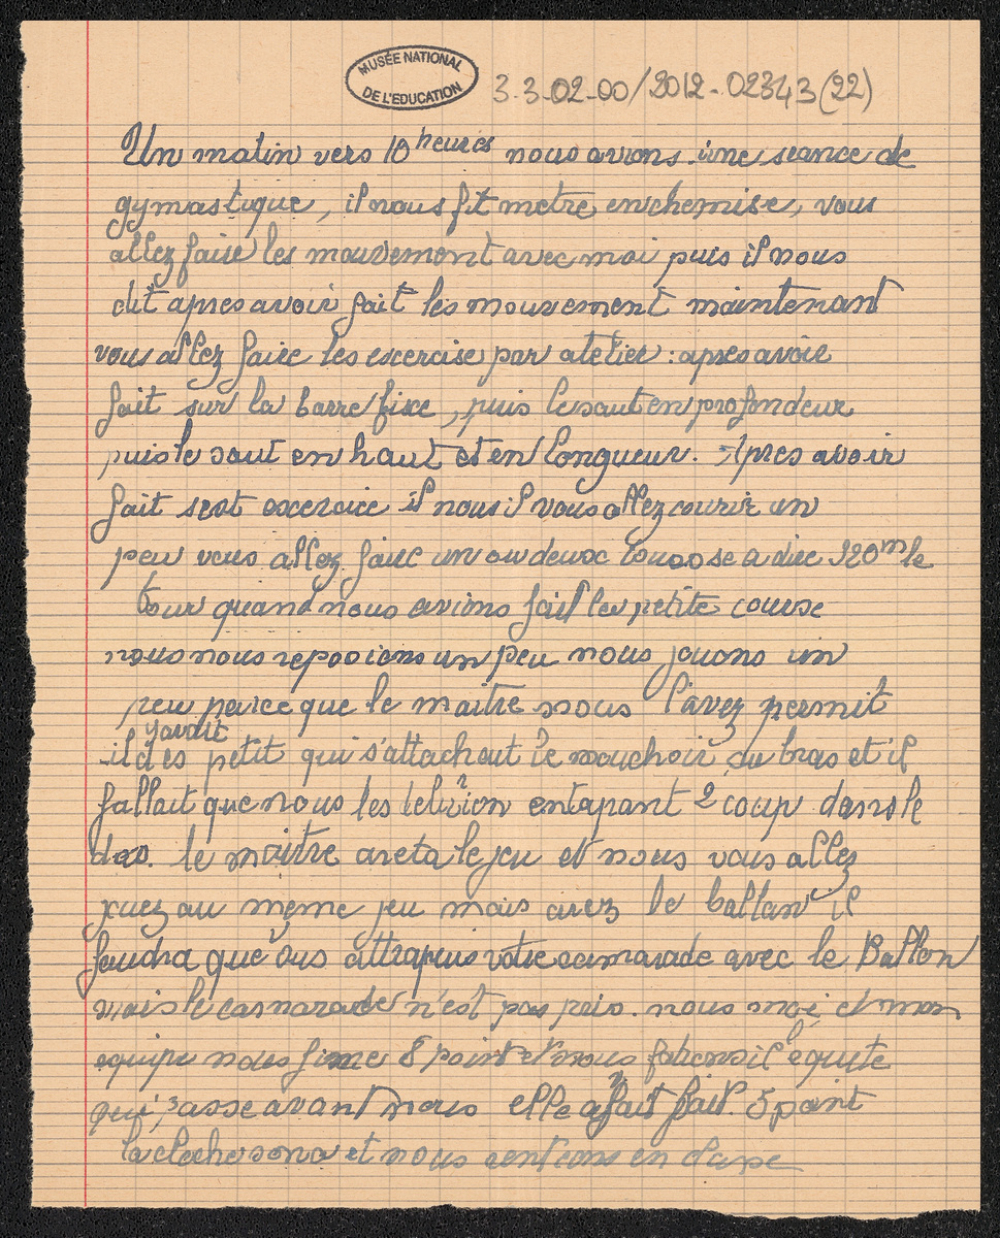 MUSÉE NATIONAL
DE L'EDUCATION
3.3.02-00/2012-02343(22)
Un matin vers 10 heures nous avions une seance de
gymastique, il nous fit metre en chemise, vous
allez faire les mouvement avec moi puis il nous
dit apres avoir fait les mouvement maintenant
vous allez faire les excercise par atelier : apres avoir
fait sur la barre fixe, puis le saut en profondeur
puis le saut en haut et en longueur. Apres avoir
fait sest excercice il nous il vous allez courir un
peu vous allez faire un ou deux tours se a dire 120m le
tour quand nous avions fait les petite course
nous nous reposions un peu nous jouons un
peu parce que le maitre nous l'avez permit
il y avait des petit qui s'attachait le mouchoir au bras et il
fallait que nous les en tapant 2 coup dans le
dos. le maître areta le jeu et nous vous allez
jouez au même jeu mais avez le ballon il
faudra que vous attrapuis votre camarade avec le Ballon
mais le camarade n'est pas pris. nous moi et mon
equipe nous fime 8 point et nous l'equite
qui passe avant nous elle afait fait 5 point
la cloche sona et nous rentrons en classe